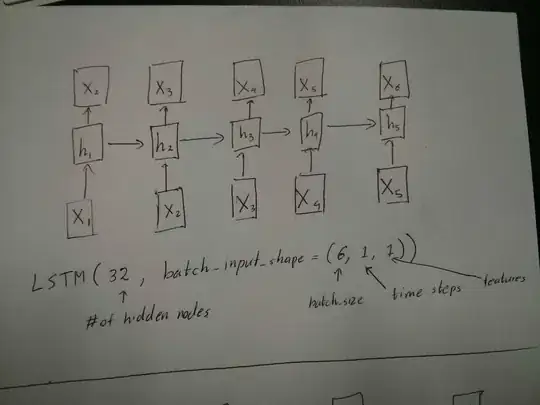 X₂ X₃ X₄ X₅ X₆
h₁ h₂ h₃ h₄ h₅
X₁ X₂ X₃ X₄ X₅
LSTM(32, batch_input_shape = (6, 1, 1))
#of hidden nodes
batch_size
time steps
features